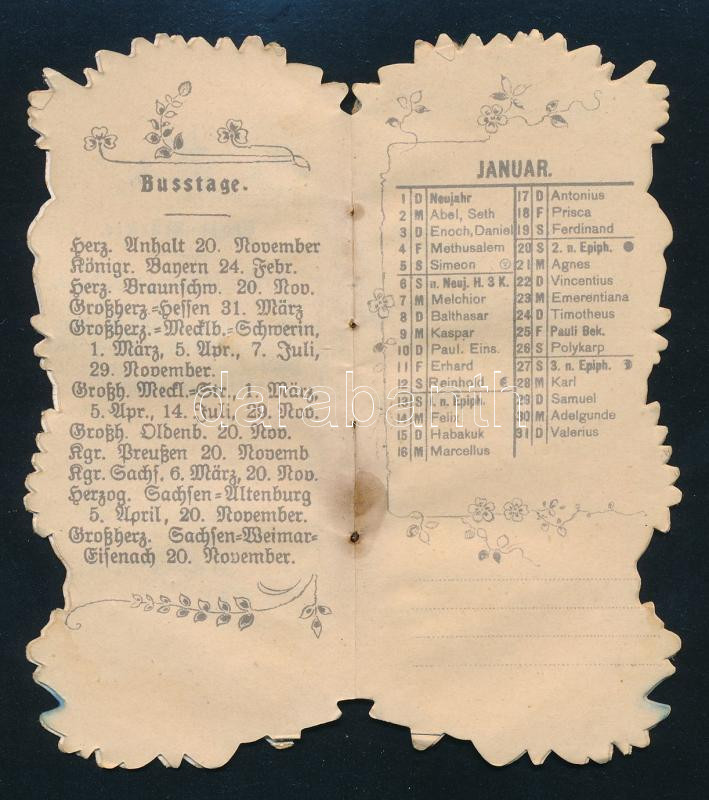 Busstage.
Herz. Anhalt 20. November
Königr. Bayern 24. Febr.
Herz. Braunschw. 20. Nov.
Großherz.=Hessen 31. März
Großherz.=Mecklb.=Schwerin,
1. März, 5. Apr., 7. Juli,
29. November.
Großh. Meckl.=Str., 1. März,
5. Apr., 14. Juli, 29. Nov.
Großh. Oldenb. 20. Nov.
Kgr. Preußen 20. Novemb
Kgr. Sachs. 6. März, 20. Nov.
Herzog. Sachsen=Altenburg
5. April, 20. November.
Großherz. Sachsen=Weimar=
Eisenach 20. November.
JANUAR.
1 D Neujahr
2 M Abel, Seth
3 D Enoch, Daniel
4 F Methusalem
5 S Simeon
6 S n. Neuj. H. 3 K.
7 M Melchior
8 D Balthasar
9 M Kaspar
10 D Paul. Eins.
11 F Erhard
12 S Reinhold
13 S 1. n. Epiph.
14 M Felix
15 D Habakuk
16 M Marcellus
17 D Antonius
18 F Prisca
19 S Ferdinand
20 S 2. n. Epiph.
21 M Agnes
22 D Vincentius
23 M Emerentiana
24 D Timotheus
25 F Pauli Bek.
26 S Polykarp
27 S 3. n. Epiph.
28 M Karl
29 D Samuel
30 M Adelgunde
31 D Valerius
darabanth